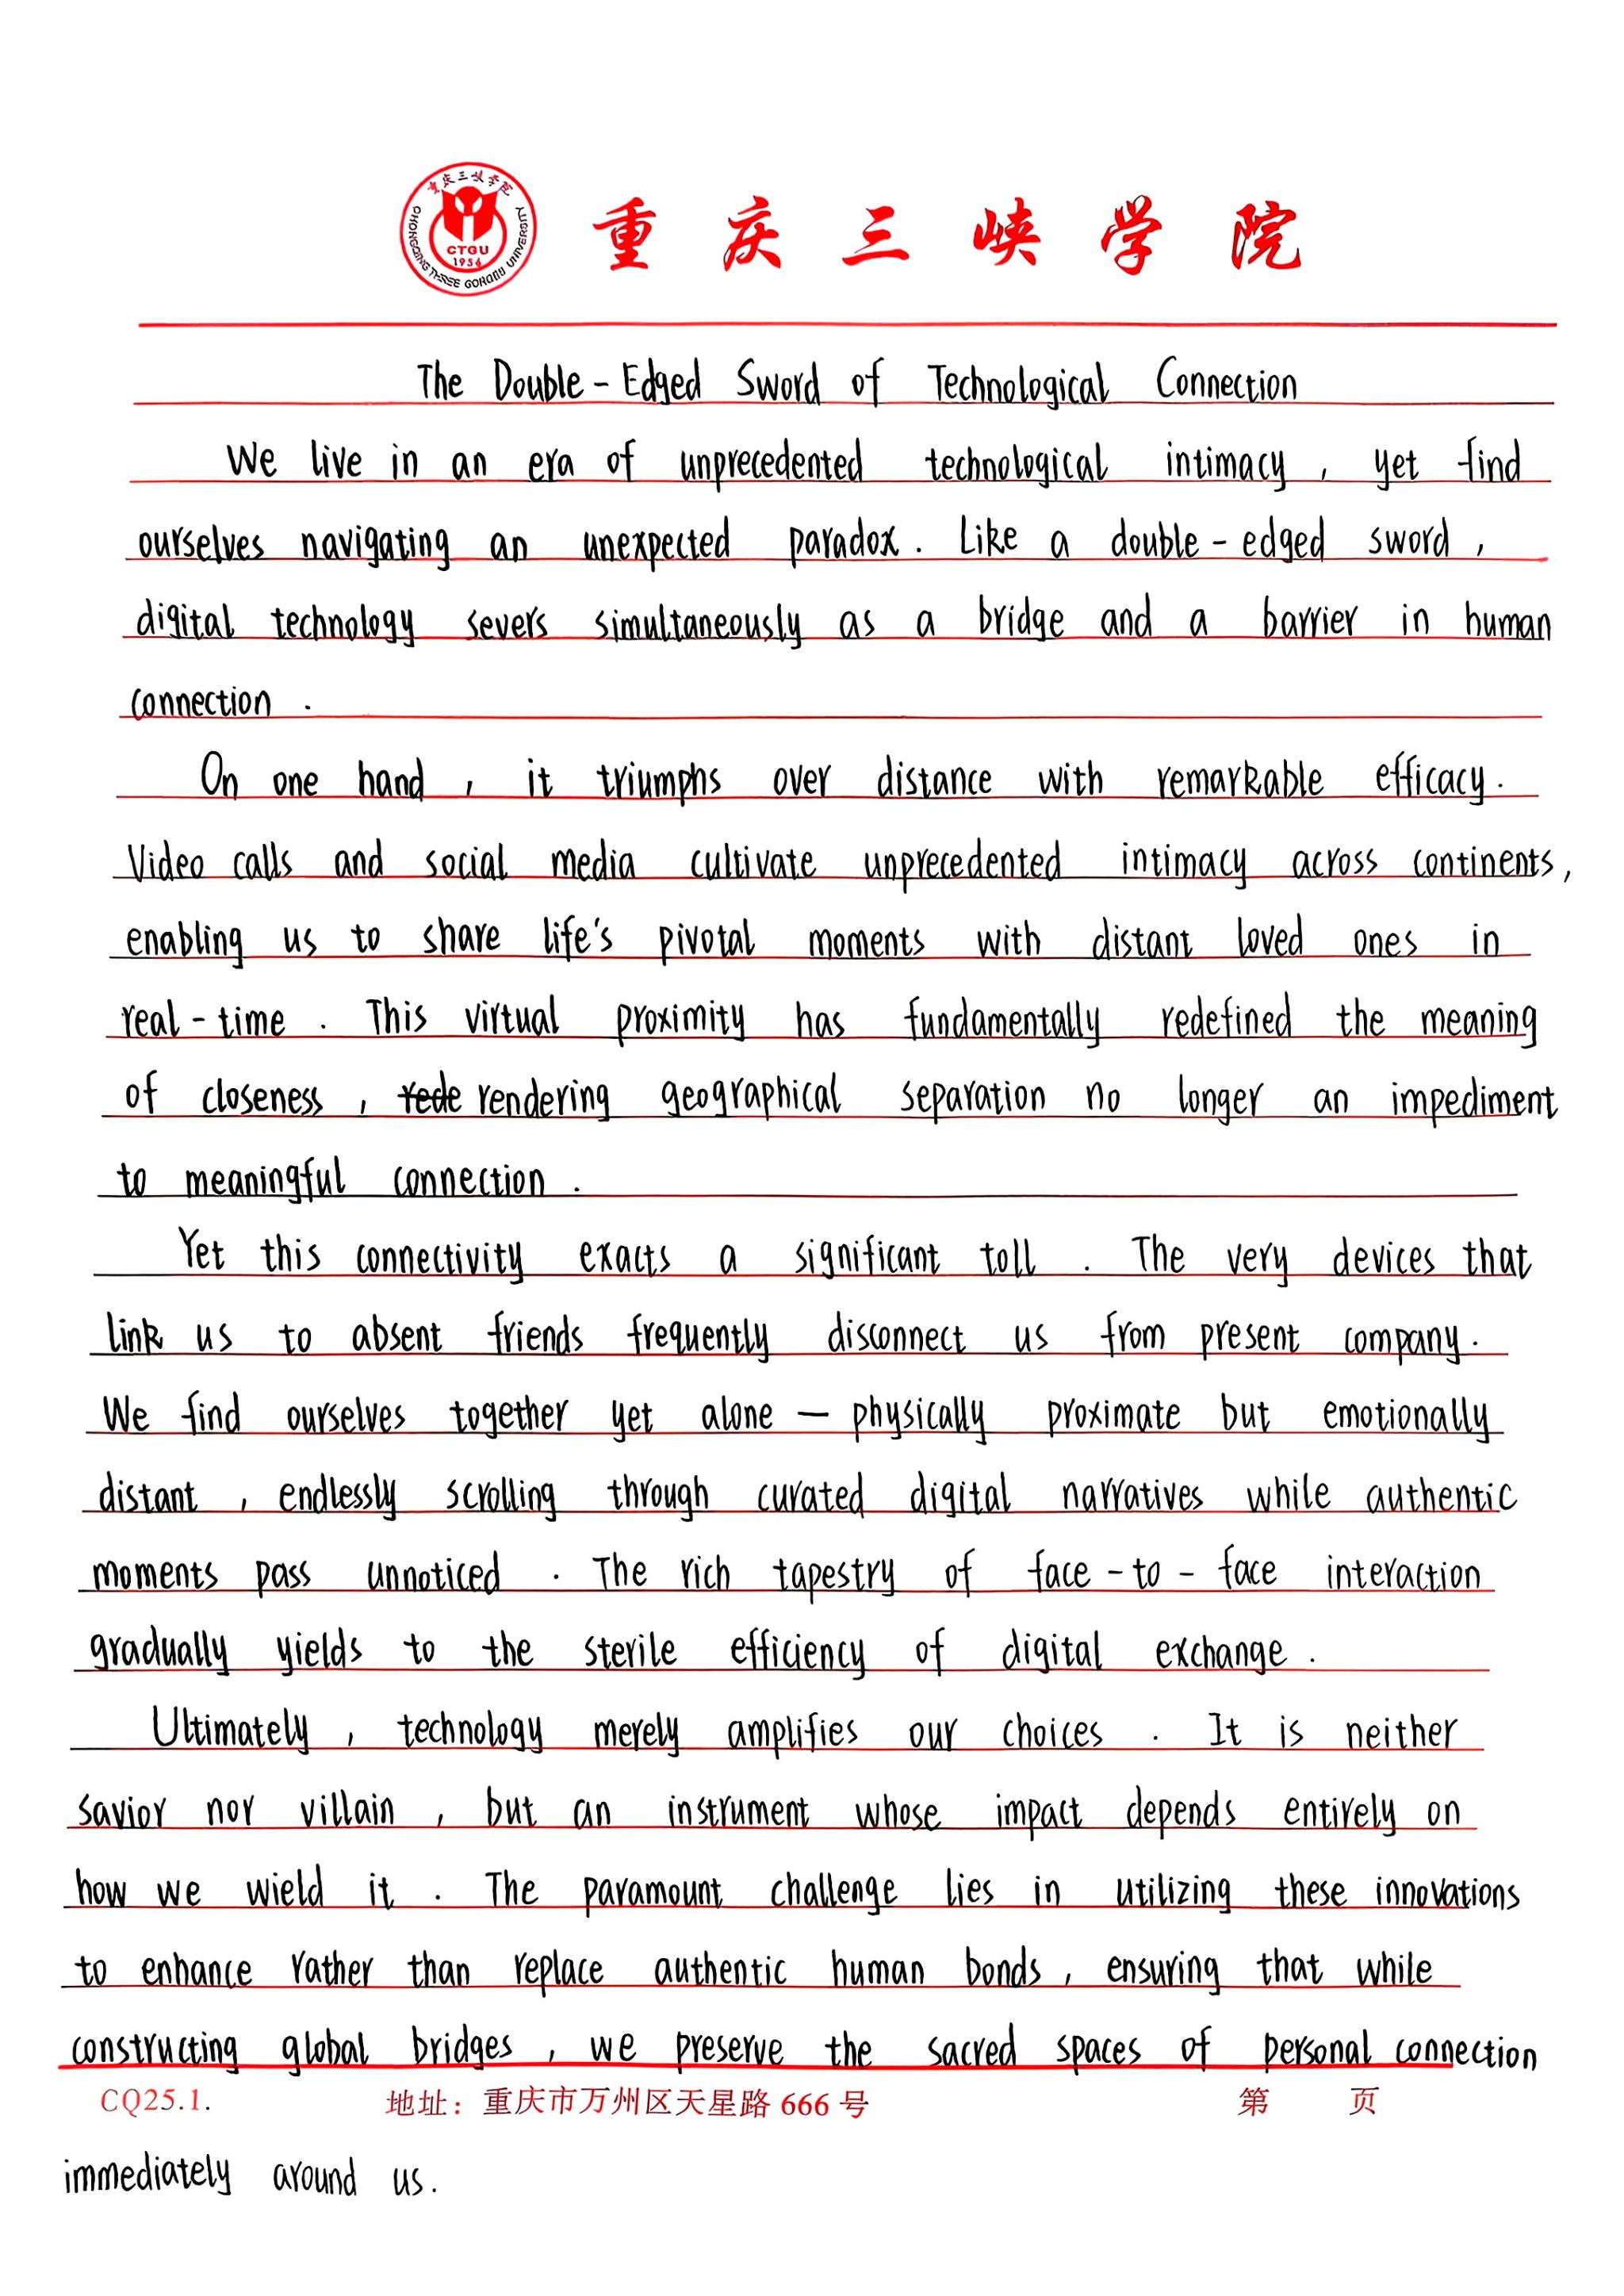 重庆三峡学院
CHONGQING THREE GORGES UNIVERSITY
CTGU
1956
重庆三峡学院
The Double-Edged Sword of Technological Connection
We live in an era of unprecedented technological intimacy, yet find
ourselves navigating an unexpected paradox. Like a double-edged sword,
digital technology severs simultaneously as a bridge and a barrier in human
connection.
On one hand, it triumphs over distance with remarkable efficacy.
Video calls and social media cultivate unprecedented intimacy across continents,
enabling us to share life's pivotal moments with distant loved ones in
real-time. This virtual proximity has fundamentally redefined the meaning
of closeness, rede rendering geographical separation no longer an impediment
to meaningful connection.
Yet this connectivity exacts a significant toll. The very devices that
link us to absent friends frequently disconnect us from present company.
We find ourselves together yet alone — physically proximate but emotionally
distant, endlessly scrolling through curated digital narratives while authentic
moments pass unnoticed. The rich tapestry of face-to-face interaction
gradually yields to the sterile efficiency of digital exchange.
Ultimately, technology merely amplifies our choices. It is neither
savior nor villain, but an instrument whose impact depends entirely on
how we wield it. The paramount challenge lies in utilizing these innovations
to enhance rather than replace authentic human bonds, ensuring that while
constructing global bridges, we preserve the sacred spaces of personal connection
CQ25.1. 地址：重庆市万州区天星路 666 号 第 页
immediately around us.